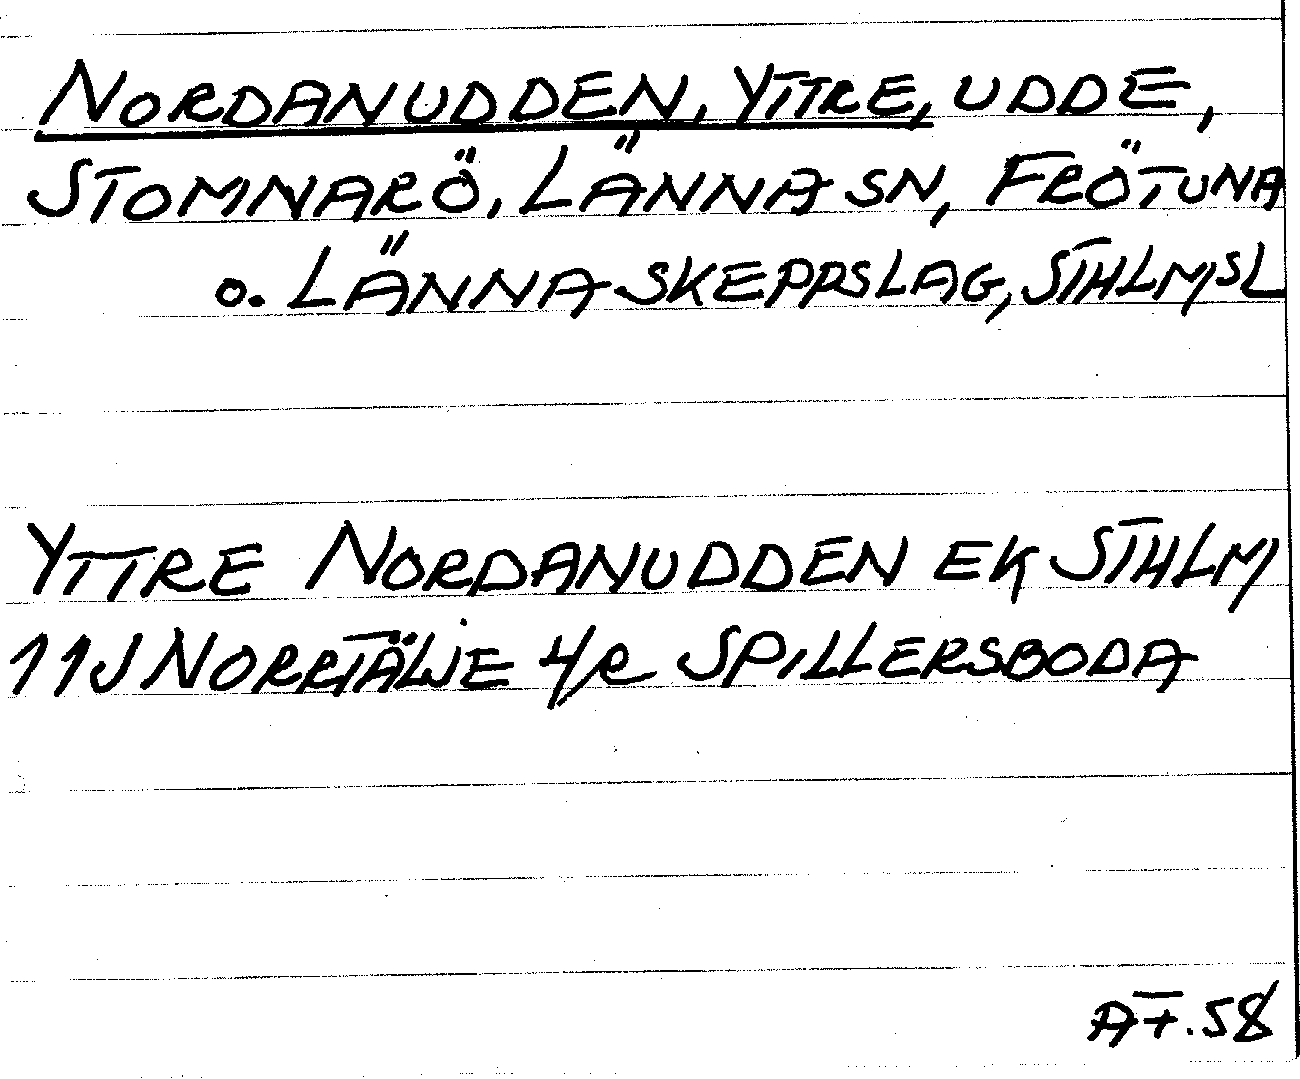 NORDANUDDEN, YTTRE, UDDE,
STOMNARÖ, LÄNNA SN, FRÖTUNA
o. LÄNNA SKEPPSLAG, STHLMSL
YTTRE NORDANUDDEN EK STHLM
11J NORRTÄLJE 4/e SPILLERSBODA
AT. 58